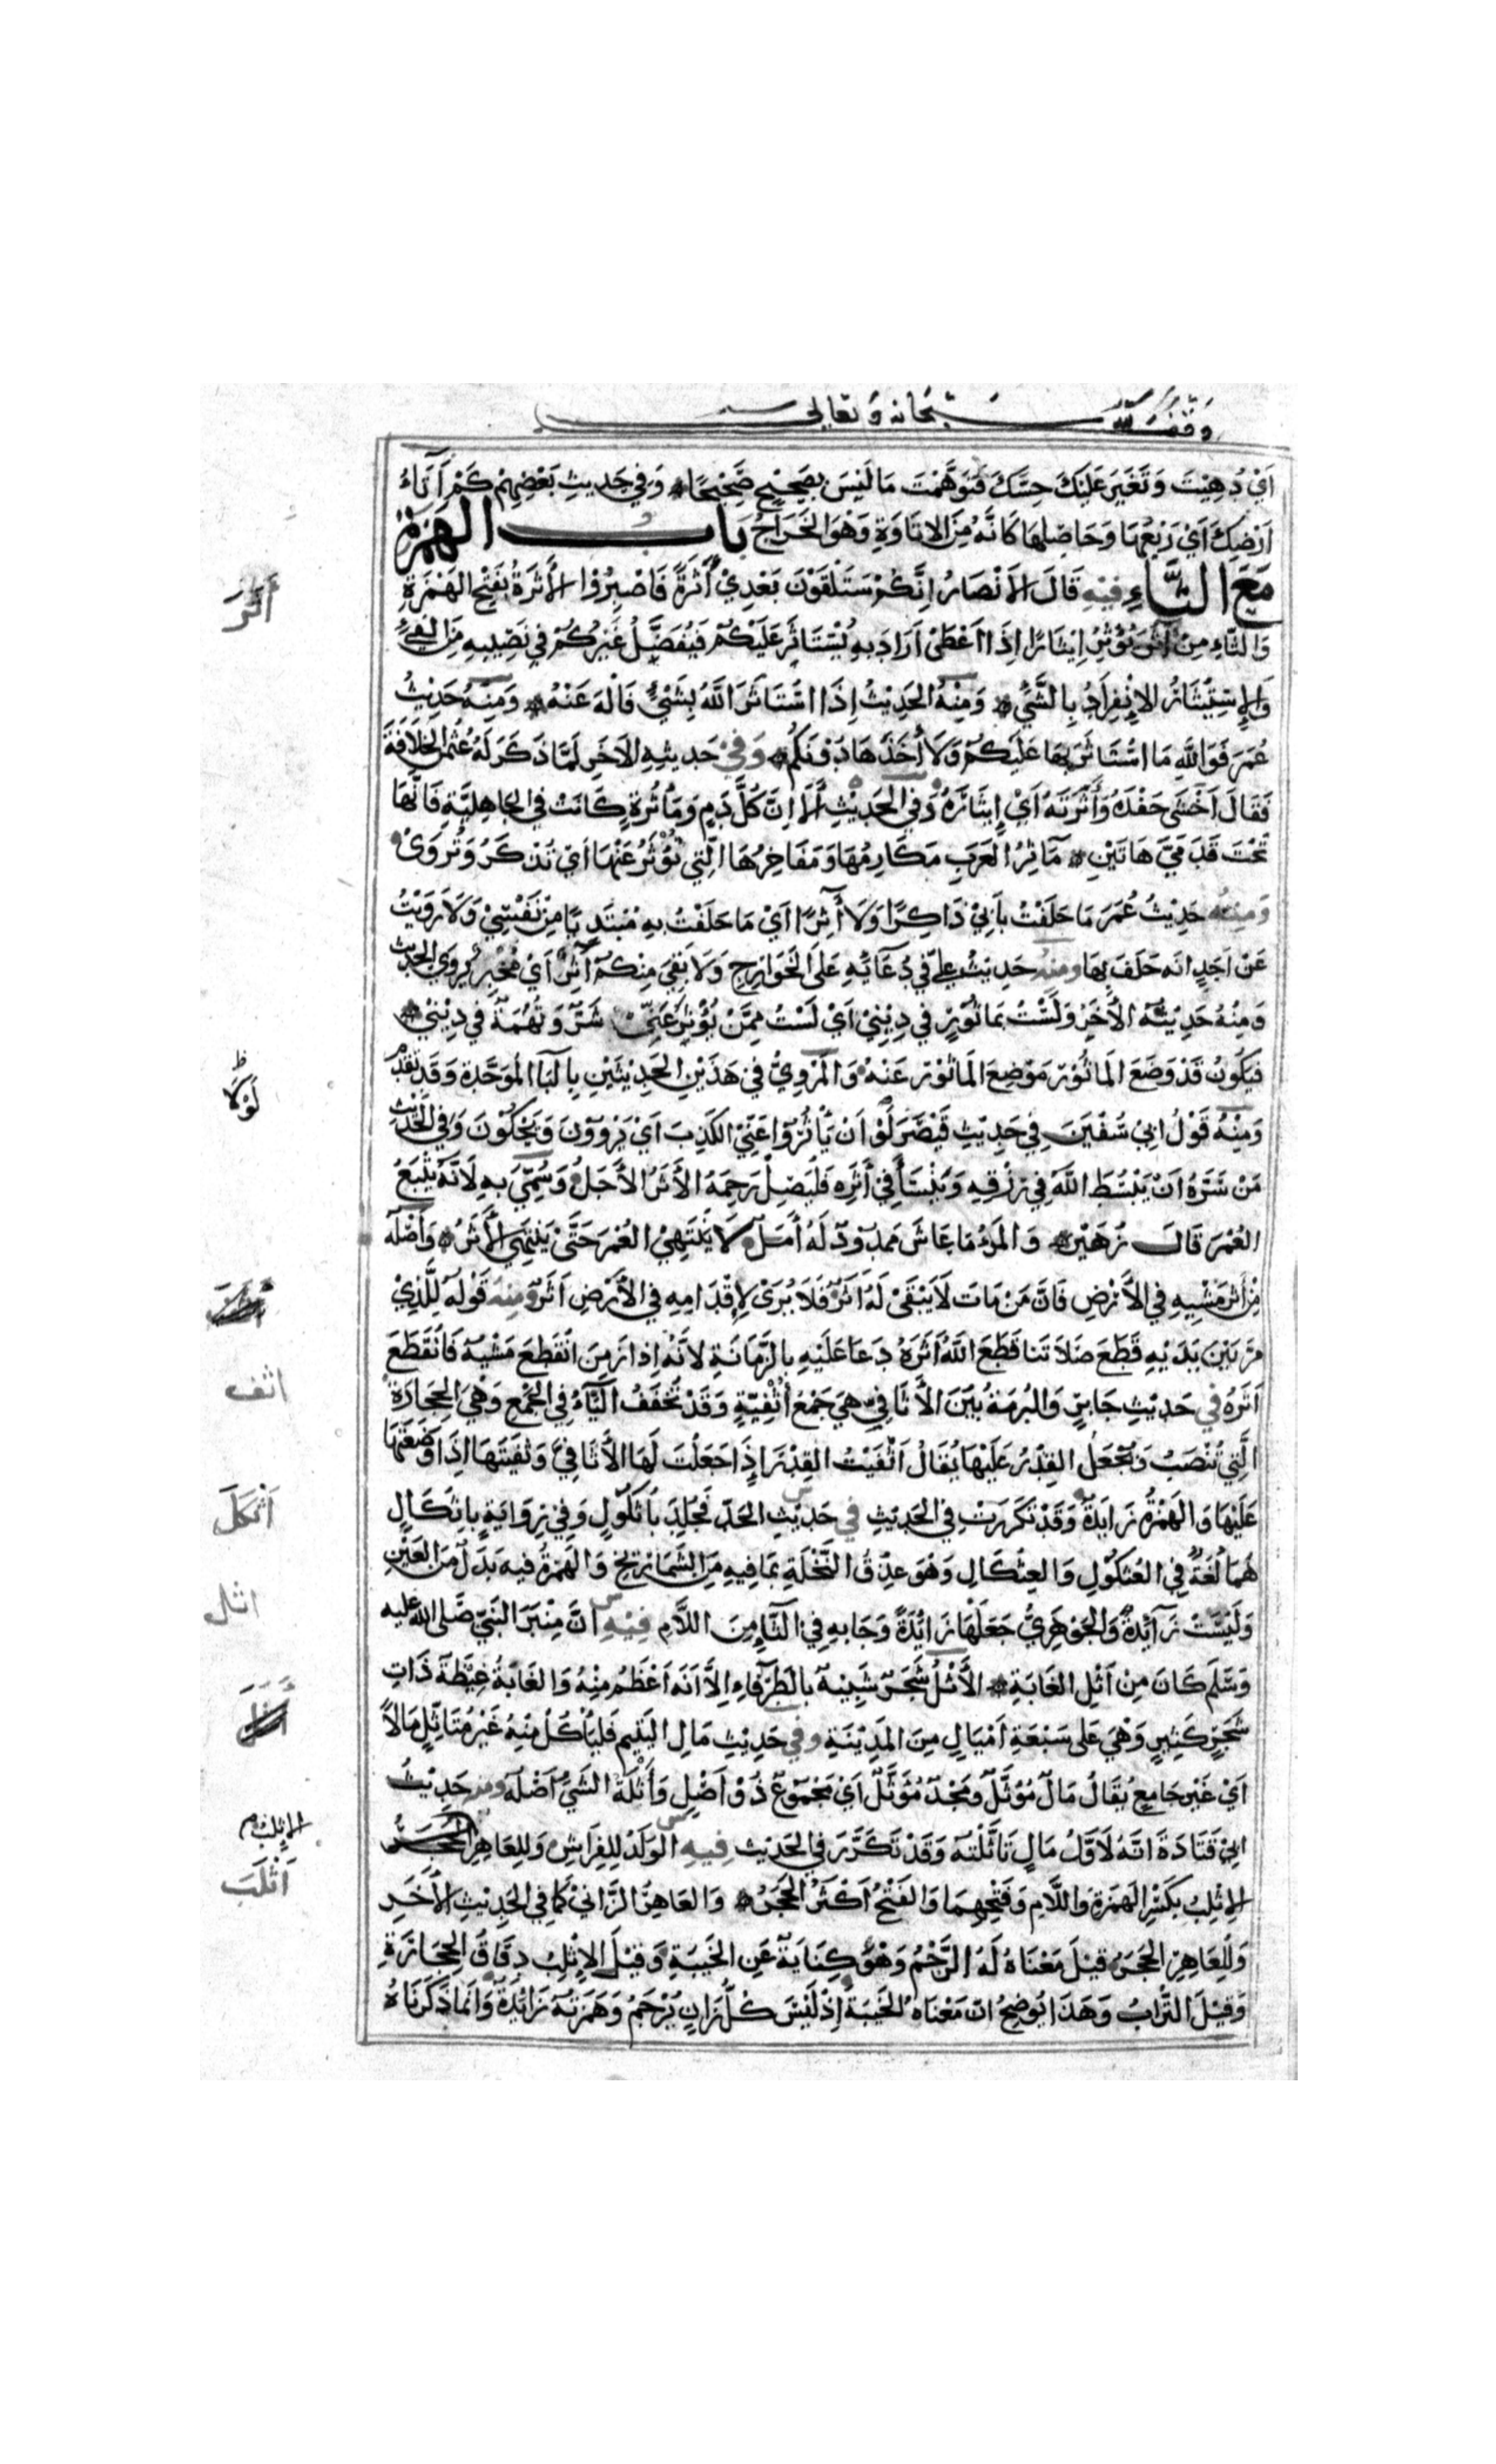 وقف لله سبحانه وتعالى
اَيْ دُهِيْتَ وَتَغَيَّرَ عَلَيْكَ حِسُّكَ فَتَوَهَّمْتَ مَا لَيْسَ بِصَحِيْحٍ صَحِيْحًا وَفِي حَدِيثِ بَعْضِهِمْ كَمْ اِتَاءُ
اَرْضِكَ اَيْ رَيْعُهَا وَحَاصِلُهَا كَاَنَّهُ مِنَ الاِتَاوَةِ وَهْوَ الخَرَاجُ بَابُ الهَمْزَةِ
مَعَ الثَّاءِ فِيْهِ قَالَ لِلاَنْصَارِ اِنَّكُمْ سَتَلْقَوْنَ بَعْدِيْ أَثَرَةً فَاصْبِرُوْا الأَثَرَةُ بِفَتْحِ الهَمْزَةِ
وَالثَّاءِ مِنْ آثَرَ يُؤْثِرُ اِيْثَارًا اِذَا اَعْطَىْ اَرَادَ بِهِ يُسْتَاثَرُ عَلَيْكُمْ فَيُفَضَّلُ غَيْرُكُمْ فِي نَصِيْبِهِ مِنَ الفَيْءِ
وَالإِسْتِيْثَارُ الاِنْفِرَادُ بِالشَّيْءِ وَمِنْهُ الحَدِيْثُ اِذَا اسْتَاثَرَ اللهُ بِشَيْءٍ فَالْهَ عَنْهُ وَمِنْهُ حَدِيْثُ
عُمَرَ فَوَاللهِ مَا اسْتَاثَرَ بِهَا عَلَيْكُمْ وَلَا أَخَذَهَا دُوْنَكُمْ وَفِيْ حَدِيثِهِ الاَخَرِ لَمَّا ذَكَرَ لَهُ عُثْمٰنَ لِلْخِلَافَةِ
فَقَالَ اَخْشَى حَفْدَهُ وَأَثَرَتَهُ اَيْ إِيثَارَهُ وَفِي الحَدِيْثِ أَلَا اِنَّ كُلَّ دَمٍ وَمَأْثُرَةٍ كَانَتْ فِي الجَاهِلِيَّةِ فَاِنَّهَا
تَحْتَ قَدَمَيَّ هَاتَيْنِ مَآثِرُ العَرَبِ مَكَارِمُهَا وَمَفَاخِرُهَا الَّتِي تُؤْثَرُ عَنْهَا اَيْ تُذْكَرُ وَتُرْوَىْ
وَمِنْهُ حَدِيْثُ عُمَرَ مَا حَلَفْتُ بِاَبِيْ ذَاكِرًا وَلَا آثِرًا اَيْ مَا حَلَفْتُ بِهِ مُبْتَدِيًا مِنْ نَفْسِيْ وَلَا رَوَيْتُ
عَنْ اَحَدٍ اَنَّه حَلَفَ بِهَا ومنهُ حَدِيْثُ عَلِيّ فِي دُعَائِهِ عَلَى الخَوَارِجِ وَلَا بَقِيَ مِنْكُمْ آثِرٌ اَيْ مُخْبِرٌ يَروِي الحَدِيْثَ
وَمِنْهُ حَدِيْثُهُ الأَخَرُ وَلَسْتُ بِمَاثُوْرٍ فِي دِيْنِيْ اَيْ لَسْتُ مِمَّنْ يُؤْثَرُ عَنِّيْ شَرٌّ وَتُهْمَةٌ فِي دِيْنِيْ
فَيَكُوْنُ قَدْ وَضَعَ المَاثُوْرَ مَوْضِعَ المَاثُوْرِ عَنْهُ وَالمَرْوِيُّ فِيْ هَذَيْنِ الحَدِيْثَيْنِ بِالْبَآ المُوَحَّدَةِ وَقَدْ تَقَدَّمَ
وَمِنْهُ قَوْلُ اَبِيْ سُفْيَنَ فِي حَدِيْثِ قَيْصَرَ لَوْ اَنْ يَأْثُرُوْا عَنِّيْ الكَذِبَ اَيْ يَرْوُوْنَ وَيَحْكُوْنَ وَفِي الحَدِيْثِ
مَنْ سَرَّهُ اَنْ يَبْسُطَ اللهُ فِي رِزْقِهِ وَيَنْسَأَ فِيْ أَثَرِهِ فَلْيَصِلْ رَحِمَهُ الأَثَرُ الأَجَلُ وَسُمِّيَ بِهِ لِاَنَّهُ يَتْبَعُ
العُمْرَ قَالَ زُهَيْرٌ وَالمَرْءُ مَا عَاشَ مَمدُوْدٌ لَهُ أَمَلٌ لَا يَنْتَهِيْ العُمْرُ حَتَّى يَنْتَهِيَ الأَثَرُ وَأَصْلُهُ
مِنْ أَثَرِ مَشْيِهِ فِي الأَرْضِ فَاِنَّ مَنْ مَاتَ لَا يَبْقَىْ لَهُ اَثَرٌ فَلَا يُرَىْ لِاِقْدَامِهِ فِي الأَرْضِ اَثَرٌ وَمِنْهُ قَوْلُهُ لِلَّذِيْ
مَرَّ بَيْنَ يَدَيْهِ قَطَعَ صَلَاتَنَا قَطَعَ اللهُ اَثَرَهُ دَعَا عَلَيْهِ بِالزَّمَانَةِ لِاَنَّهُ اِذَا زَمِنَ انْقَطَعَ مَشْيُهُ فَانْقَطَعَ
اَثَرُهُ فِي حَدِيْثِ جَابِرٍ وَالبُرْمَةُ بَيْنَ الأَثَافِيِّ هِيَ جَمْعُ أُثْفِيَّةٍ وَقَدْ تُخَفَّفُ اليَآءُ فِي الجَمْعِ وَهْيَ الحِجَارَةُ
الَّتِيْ تُنْصَبُ وَتُجْعَلُ القِدْرُ عَلَيْهَا يُقَالُ اَثْفَيْتُ القِدْرَ إِذَا جَعَلْتَ لَهَا الأَثَافِيَّ وَثَفَّيْتَهَا اِذَا وَضَعْتَهَا
عَلَيْهَا وَالهَمْزَةُ زَايِدَةٌ وَقَدْ تَكَرَّرَتْ فِي الحَدِيْثِ فِي حَدِيْثِ الحَدِّ فَجُلِدَ بِاُثْكُوْلٍ وَفِيْ رِوَايَةٍ بِاِثْكَالٍ
هُمَا لُغَةٌ فِي العُثْكُوْلِ وَالعِثْكَالِ وَهُوَ عِذْقُ النَّخْلَةِ بِمَا فِيهِ مِنَ الشَّمَارِيْخِ وَالهَمْزَةُ فِيهِ بَدَلٌ مِنَ العَيْنِ
وَلَيْسَتْ زَآئِدَةً وَالجَوْهَرِيُّ جَعَلَهَا زَائِدَةً وَجَا بِهِ فِي الثَّآءِ مِنَ اللَّامِ فِيْهِ اَنَّ مِنْبَرَ النَّبِيِّ صَلَّى الله عليه
وَسَلَّمَ كَانَ مِنْ اَثْلِ الغَابَةِ الأَثْلُ شَجَرٌ شَبِيْهٌ بِالطَّرْفَاءِ اِلَّا اَنَّهُ اَعْظَمُ مِنْهُ وَالغَابَةُ غَيْضَةٌ ذَاتُ
شَجَرٍ كَثِيْرٍ وَهْيَ عَلى سَبْعَةِ اَمْيَالٍ مِنَ المَدِيْنَةِ وفي حَدِيْثِ مَالِ اليَتِيمِ فَلْيَأْكُلْ مِنْهُ غَيْرَ مُتَاثِّلٍ مَالاً
اَيْ غَيْرَ جَامِعٍ يُقَالُ مَالٌ مُؤَثَّلٌ وَمَجْدٌ مُؤَثَّلٌ اَيْ مَجْمُوْعٌ ذُوْ اَصْلٍ وَأَثْلَةُ الشَّيْءِ اَصْلُهُ ومنه حَدِيْثُ
اَبِيْ قَتَادَةَ اَنَّهُ لَاَوَّلُ مَالٍ تَاَثَّلْتُهُ وَقَدْ تَكَرَّرَ فِي الحَدِيْثِ فِيهِ الوَلَدُ لِلفِرَاشِ وَلِلعَاهِرِ
الإِثْلِبُ بِكَسْرِ الهَمْزَةِ وَاللَّامِ وَفَتْحِهِمَا وَالفَتْحُ أَكْثَرُ الحَجَرُ وَالعَاهِرُ الزَّانِيْ كَمَا فِي الحَدِيْثِ الأَخَرِ
وَلِلعَاهِرِ الحَجَرُ قِيْلَ مَعْنَاهُ لَهُ الرَّجْمُ وَهُوَ كِنَايَةٌ عَنِ الخَيبَةِ وَقِيْلَ الإِثْلِبُ دِقَاقُ الحِجَارَةِ
وَقِيْلَ التُّرَابُ وَهَذَا يُوضِحُ اَنَّ مَعْنَاهُ الخَيبَةُ إِذْ لَيْسَ كُلُّ زَانٍ يُرْجَمُ وَهَمْزَتُهُ زَائِدَةٌ وَاِنَّمَا ذَكَرْنَاهُ
أثر
لَوْلَا ظ
اثف
اَثْكَلَ
اثل
الإثلب
اَثْلَبَ